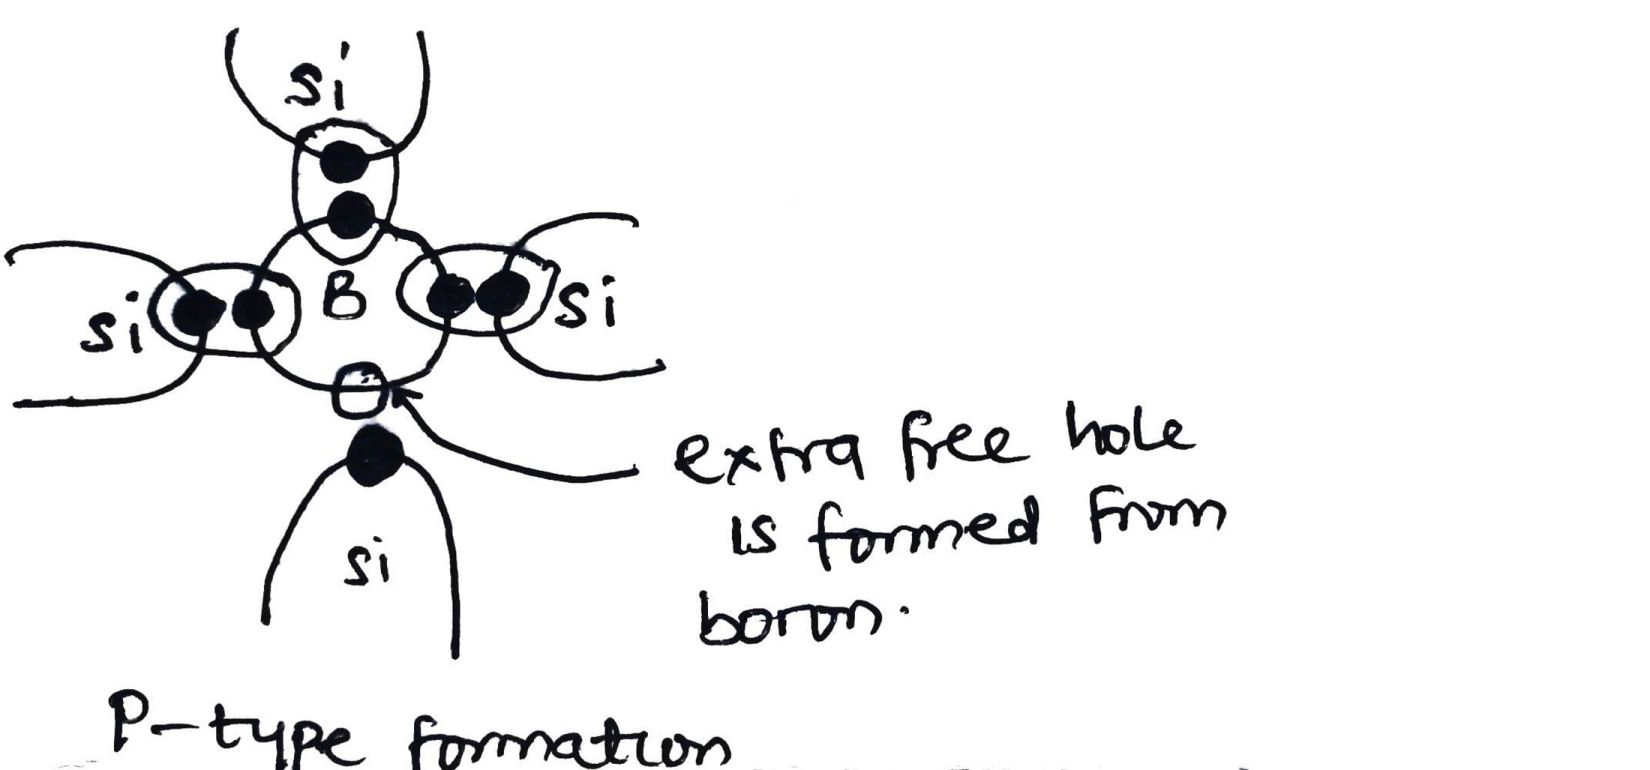 Si
B
Si
Si
extra free hole
is formed from
boron.
Si
P-type formation